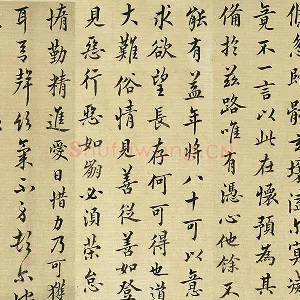 竟不一言以此在懷預為其
備於茲路唯有憑心他餘无
能有益年將八十可以意
求欲望長存何可得也道
大難俗情見善從善如登
見惡行惡如崩必須策怠
惰勤精進愛日惜力乃可獲
耳高聲